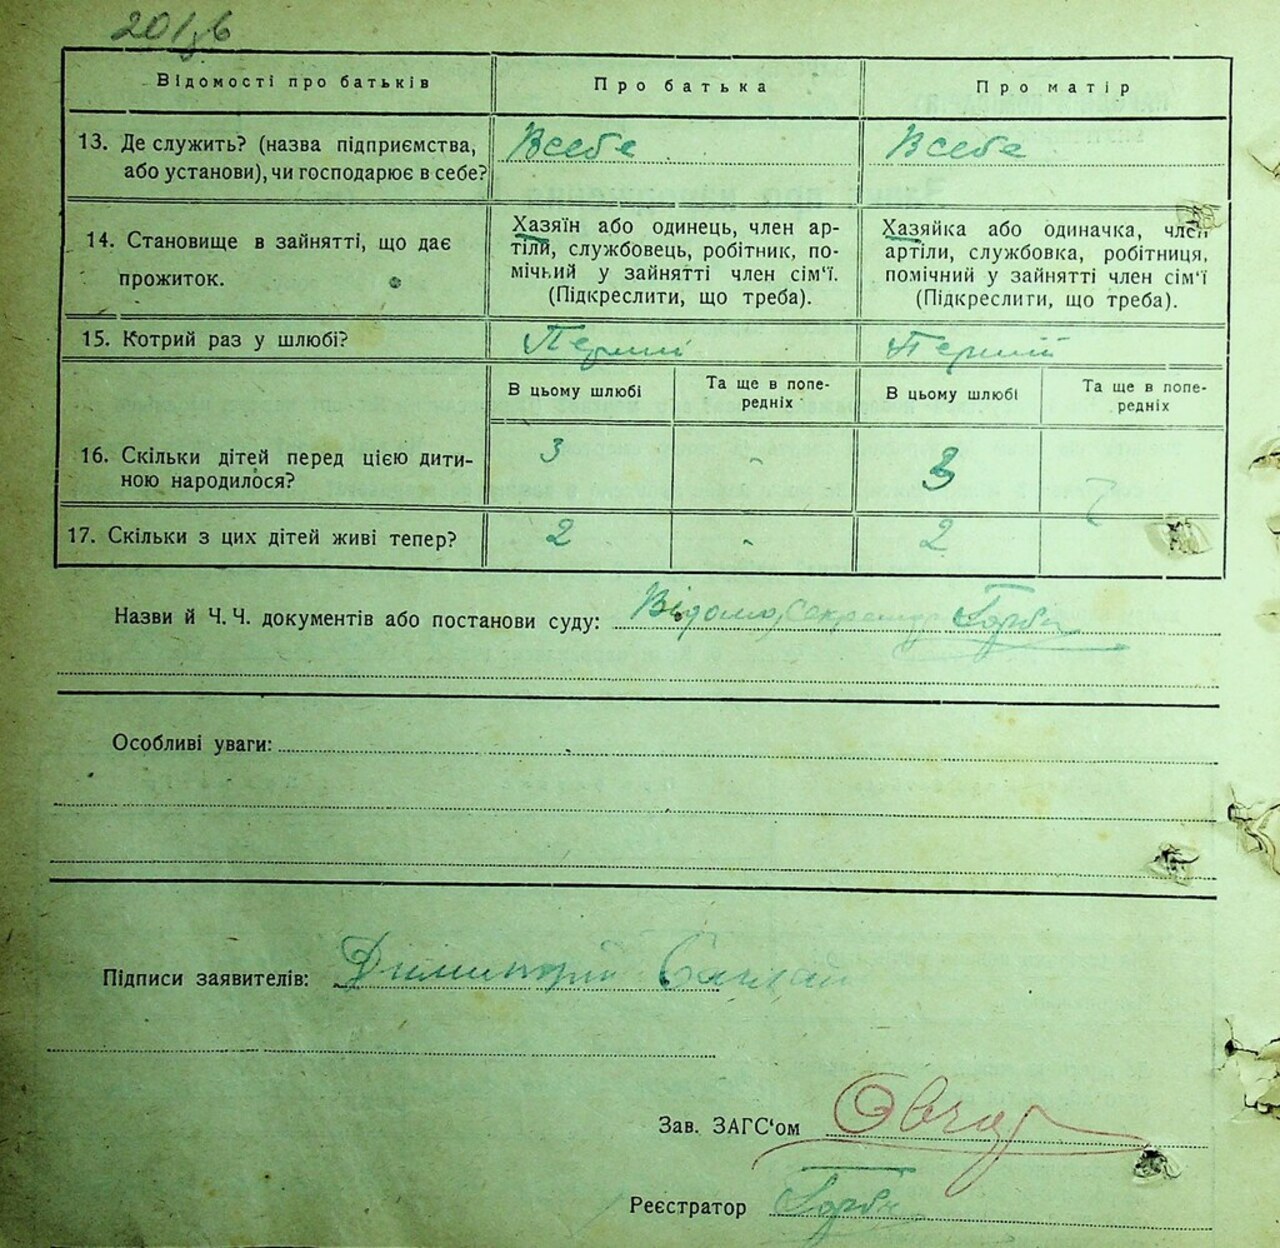 Відомості про батьків Про батька Про матір
13. Де служить? (назва підприємства, або установи), чи господарює в себе? Всебе Всебе
14. Становище в зайнятті, що дає прожиток.
Хазяїн або одинець, член ар-
тіли, службовець, робітник, по-
мічний у зайнятті член сім'ї.
(Підкреслити, що треба).
Хазяйка або одиначка, член
артіли, службовка, робітниця,
помічний у зайнятті член сім'ї
(Підкреслити, що треба).
15. Котрий раз у шлюбі? Перший Перший
В цьому шлюбі Та ще в попе-
редніх В цьому шлюбі Та ще в попе-
редніх
16. Скільки дітей перед цією дити-
ною народилося? 3 - 3
17. Скільки з цих дітей живі тепер? 2 - 2
Назви й Ч. Ч. документів або постанови суду: Відомо, Секретар
Особливі уваги:
Підписи заявителів: Димитрій
Зав. ЗАГС'ом
Реєстратор